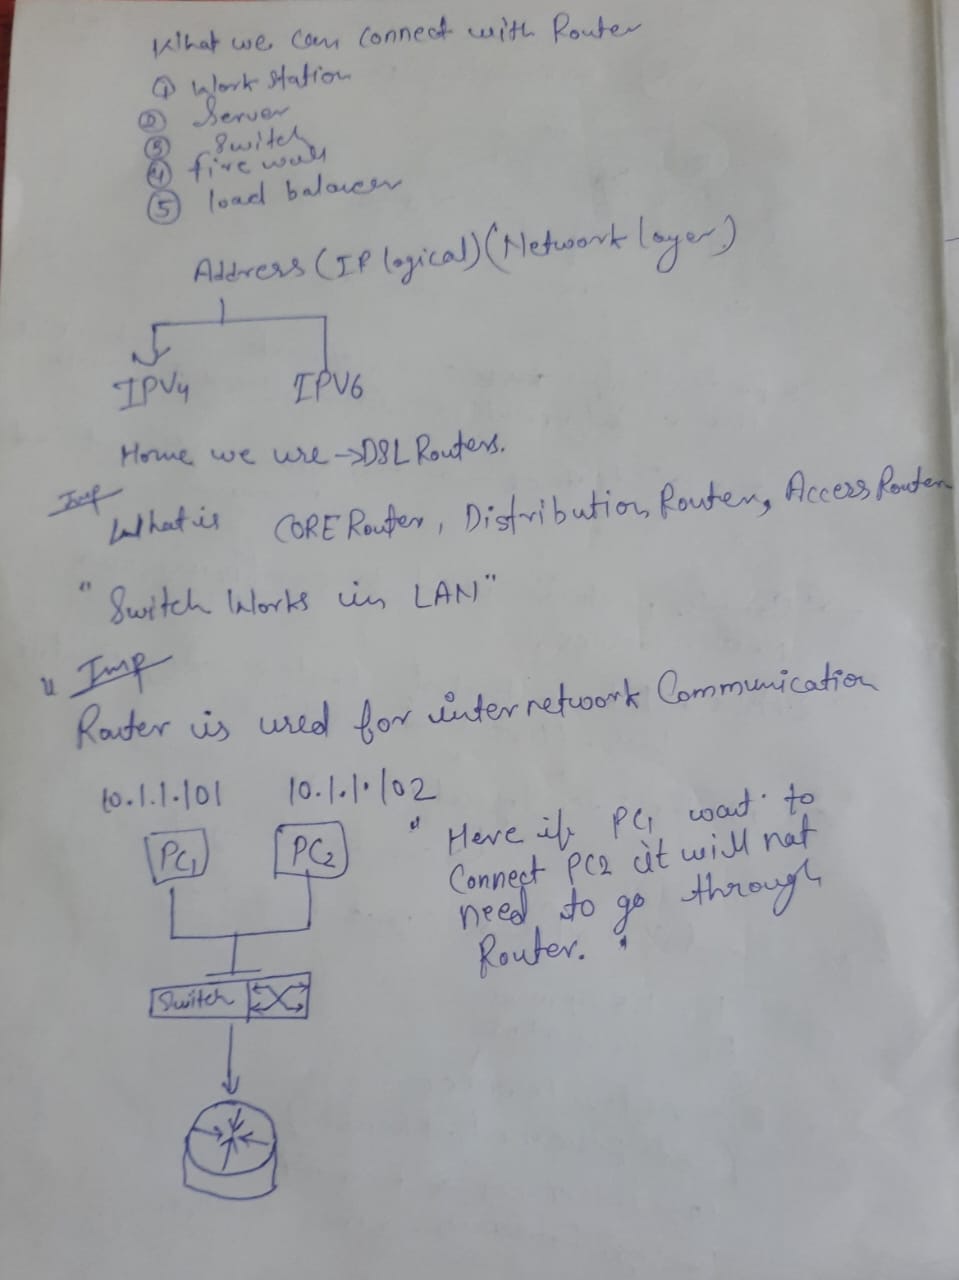 What we can connect with Router
① Work station
② Server
③ Switch
④ fire wall
⑤ load balancer
Address (IP logical) (Network layer)
IPV4 IPV6
Home we use → DSL Routers.
Imp
What is CORE Router, Distribution Router, Access Router
"Switch Works in LAN"
" Imp
Router is used for internetwork Communication
10.1.1.101 10.1.1.102
PC1 PC2
" Here if PC1 want to
Connect PC2 it will not
need to go through
Router. "
Switch